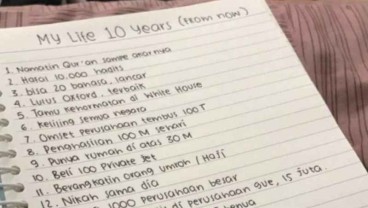 My Life 10 years (from now)
1. Namatin Qur'an sampe
2. Hafal 10.000 hadits
3. bisa 20 bahasa, lancar
4. Lulus Oxford, terbaik
5. Tamu kehormatan di White House
6. Keliling semua negara
7. Omset perusahaan tembus 100T
8. Penghasilan 100 M sehari
9. Punya rumah di atas 30 M
10. Beli 100 Private Jet
11. Berangkatin orang Umroh / Haji
12. Nikah sama dia
1000 perusahaan besar
di perusahaan gue, 15 juta.